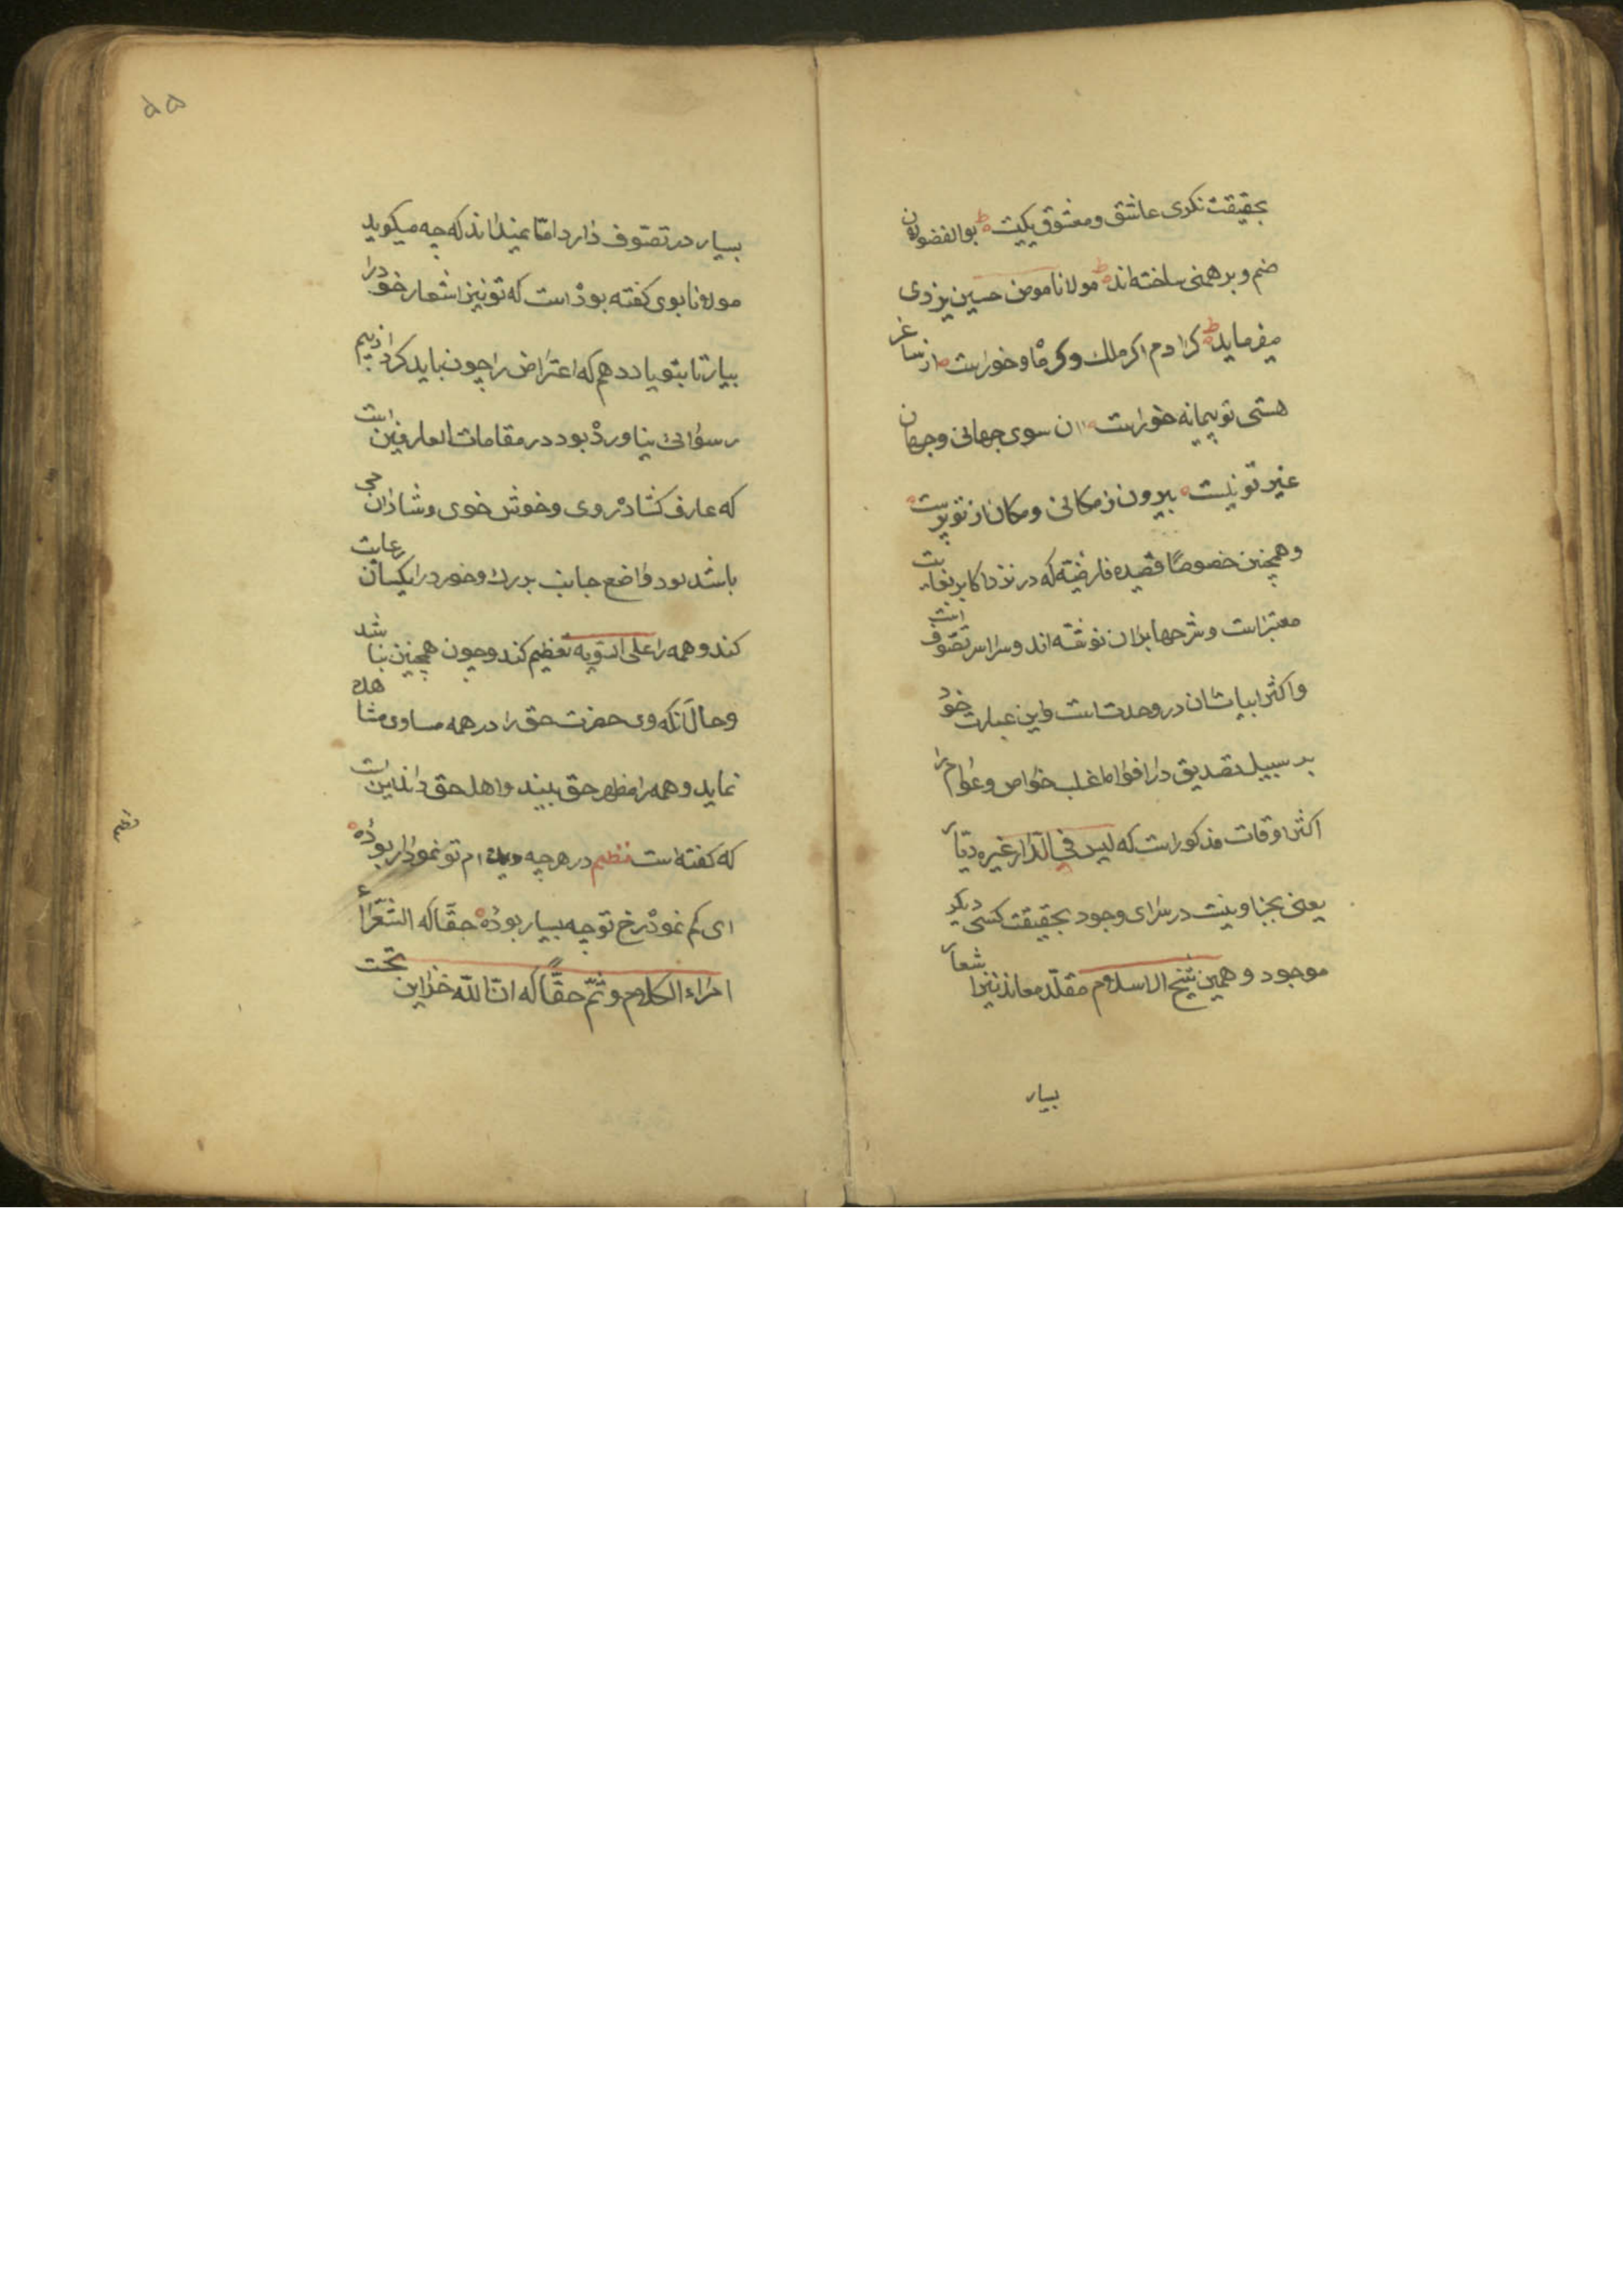 بحقیقت نکری عاشق و معشوق یکیت بوالفضولان
صنم و برهمنی ساخته‌اند مولانا مومن حسین یزدی
میفرماید کر ادم اکر ملک وکر ماه و خورست از ساغر
هستی تو پیمانه خورست ان سوی جهانی و جهان
غیر تو نیست بیرون ز مکانی و مکان از تو پرست
و همچنین خصوصًا قصیده فارضیّه که در نزد اکابر بغایت
معتبر است و شرحها بران نوشته‌اند و سراسر تصوّف است
و اکثر ابیاتشان در وحدتست و این عبارت خود
بر سبیل تصدیق در افواه اغلب خواص و عوام را
اکثر اوقات مذکور است که لیس فی الدّار غیره دیّار
یعنی بجز او نیست در سرای وجود بحقیقت کسی دیکر
موجود و همین شیخ الاسلام مقلّد معاند نیز اشعار
بسیار
۵۵
بسیار در تصوّف دارد امّا نمیداند که چه میکوید
مولانا بوی کفته بوده است که تو نیز اشعار خود را
بیار تا بتو یاد دهم که اعتراض را چون باید کرد از بیم
رسوائی نیاورده بود در مقامات العارفین است
که عارف کشاده روی و خوش خوی و شادان می
باشد بود واضع جانب بزرك و خورد را یکسان رعایت
کند و همه را علی السّویه تعظیم کند و چون همچنین نباشد
و حال آنکه وی حضرت حق را در همه مساوی مشاهده
نماید و همه را مظهر حق بیند و اهل حق داند این است
که کفته است نظم در هرچه دیده‌ام تو نمودار بودهٔ
ای کم نموده رخ تو چه بسیار بودهٔ حقّا که الشّعراء
امراء الکلام و ثمّ حقّا که انّ الله خزاین تحت